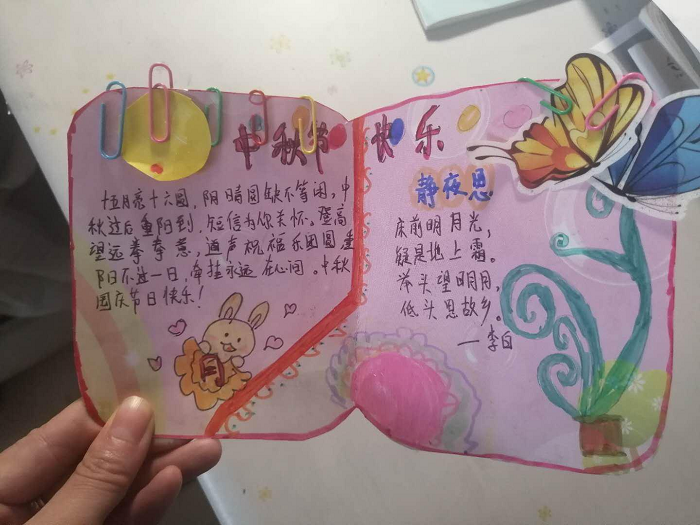 中秋节快乐
十五月亮十六圆,阴晴圆缺不等闲,中
秋过后重阳到,短信为你关怀。登高
望远拳拳意,遥声祝福乐团圆重
阳日不过一日,牵挂永远在心间。中秋
国庆节日快乐!
静夜思
床前明月光,
疑是地上霜。
举头望明月,
低头思故乡。
—李白